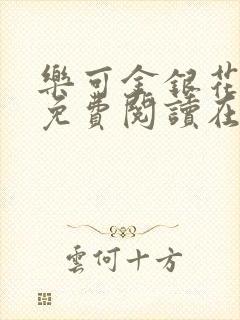 樂可金銀花
免費閱讀在
雲何十方